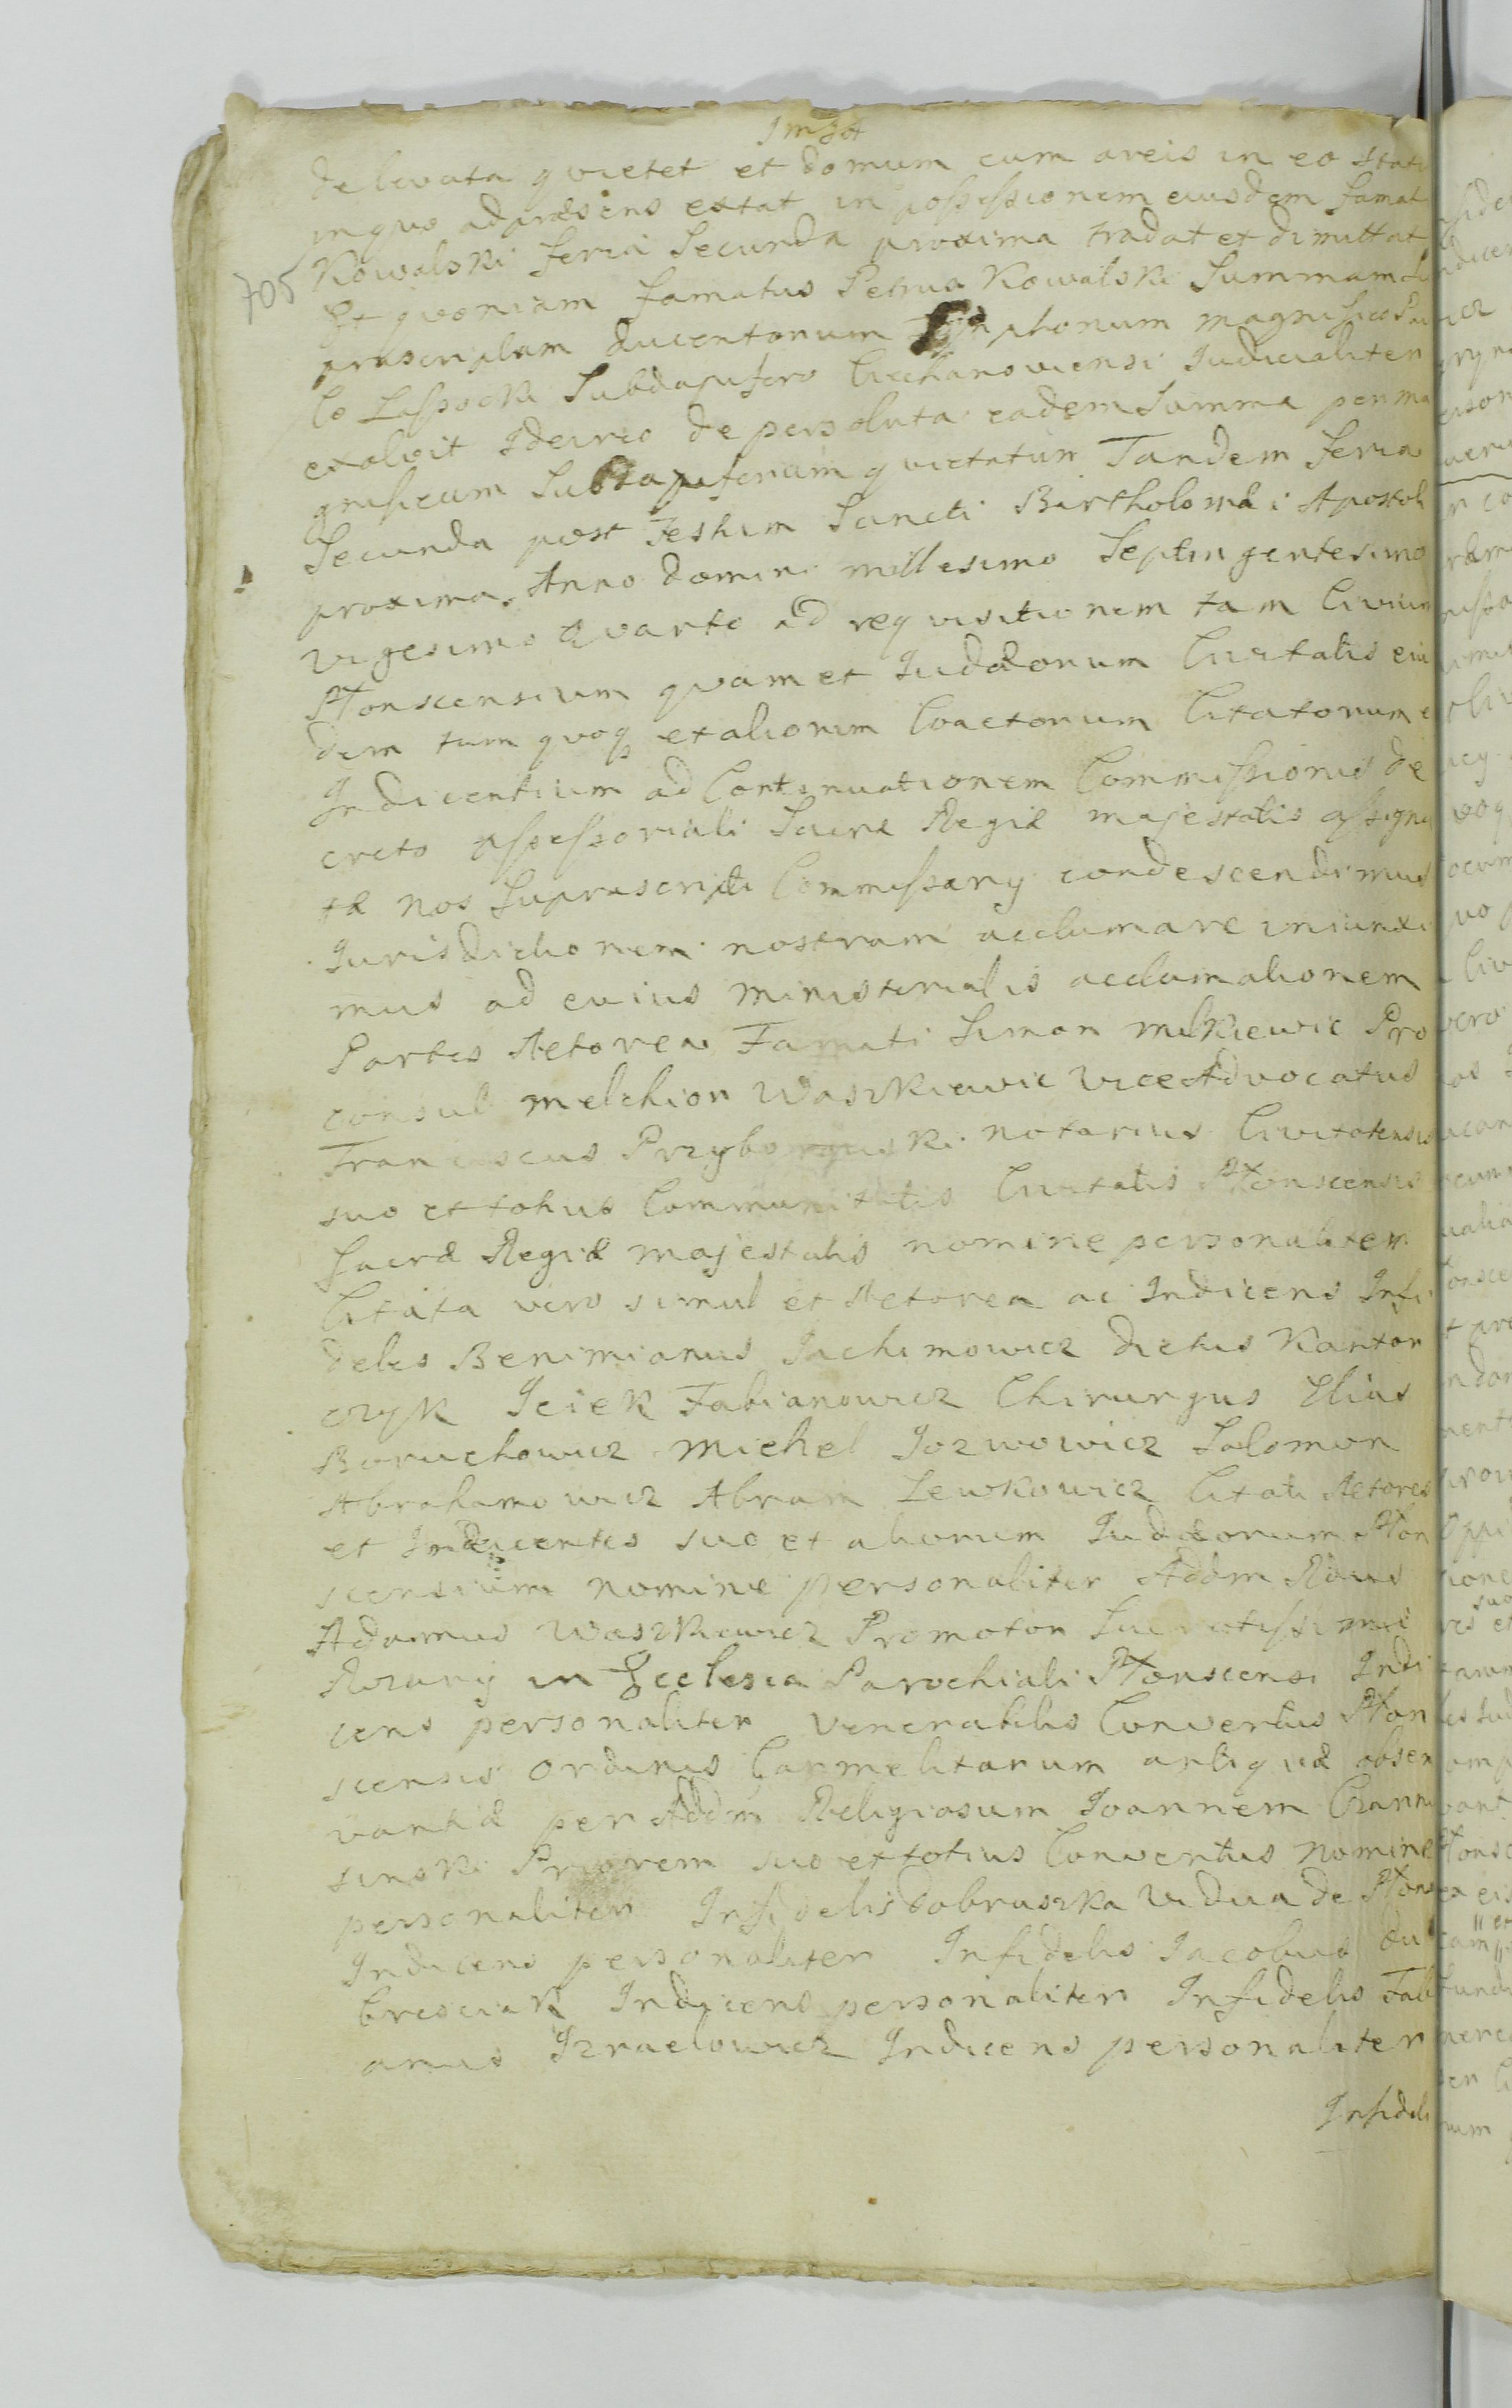 delevata quietet et domum cum areis in eo statu
in quo ad præsens extat in possessionem eiusdem famat
Kowalski feria secunda proxima tradat et dimittat
705
Et quoniam famatus Petrus Kowalski Summam
præscriptam ducentorum magnifico
Łaspocki Subdapifero Ciechanoviensi Judicialiter
exolvit Idcirco de persoluta eadem Summa per ma
gnificum Subdapiferum quietatur Tandem feria
Secunda post Festum Sancti Bartholomæi Apostoli
proxima Anno domini millesimo Septingentesimo
vigesimo Quarto ad requisitionem tam Civium
Płonscensium quam et Judæorum Civitatis eius
dem tum quoq et aliorum Coactorum Citatorum e
Indicentium ad Continuationem Commissionis de
creto assessoriali Sacræ Regiæ majestatis assigna
tæ nos Suprascripti Commissary condescendimus
Jurisdictionem nostram acclamare iniunxi
mus ad cuius ministerialis acclamationem
Partes Actorea Famati Simon milkiewic Pro
consul melchior Waszkiewic ViceAdvocatus
Franciscus notarius Civitatensis
suo et totius Communitatis Civitatis Płonscensis
Sacræ Regiæ majestatis nomine personaliter
Citata vero simul et Actorea ac Indicens Infi
deles Benimianus Jachimowicz dictus Kantor
czyk Iciek Fabianowicz Chirurgus Elias
Boruchowicz Michel Jozwowicz Salomon
Abrahamowicz Abram Lewkowicz Citati Actores
et Indicentes suo et aliorum Judæorum Płon
scensium nomine personaliter Addm Rdus
Adamus Waszkiewicz Promotor Sacratissimi
Rozary in Ecclesia Parochiali Płonscensi Indi
cens personaliter Venerabilis Conventus Płon
scensis Ordinis Carmelitarum antiquæ obser
vantiæ per Addm Religiosum Joannem
Priorem suo et totius Conventus nomine
personaliter Infidelis Dobruszka Vidua de Płons
Indicens personaliter Infidelis Jacobus
Indicens personaliter Infidelis Fabi
anus Izraelowicz Indicens personaliter
Infideli